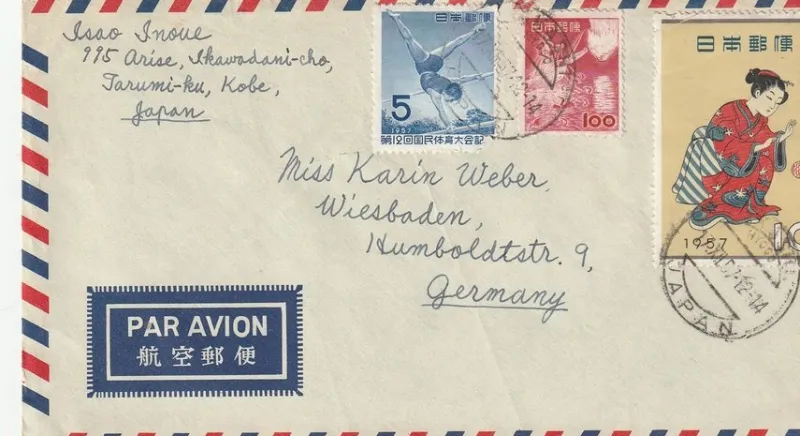 Isao Inoue
995 Arise, Ikawadani-cho,
Tarumi-ku, Kobe,
Japan
日本郵便
5
1957
第12回国民体育大会記
日本郵便
100
日本郵便
1957
10
Miss Karin Weber,
Wiesbaden,
Humboldtstr. 9,
Germany
PAR AVION
航空郵便
JAPAN